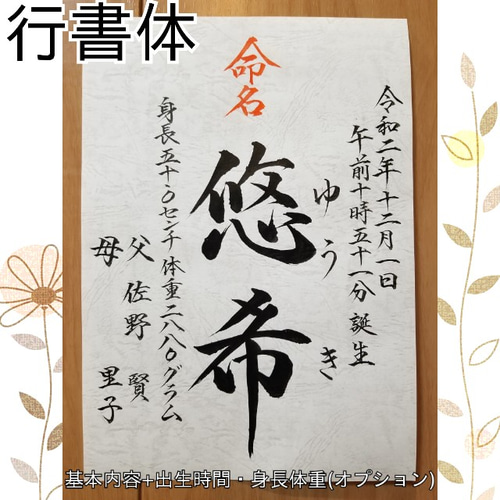 行書体
命名
令和二年十二月一日
午前十時五十一分 誕生
ゆうき
悠希
身長五十・〇センチ 体重二八八〇グラム
父 佐野 賢
母 里子
基本内容+出生時間・身長体重(オプション)